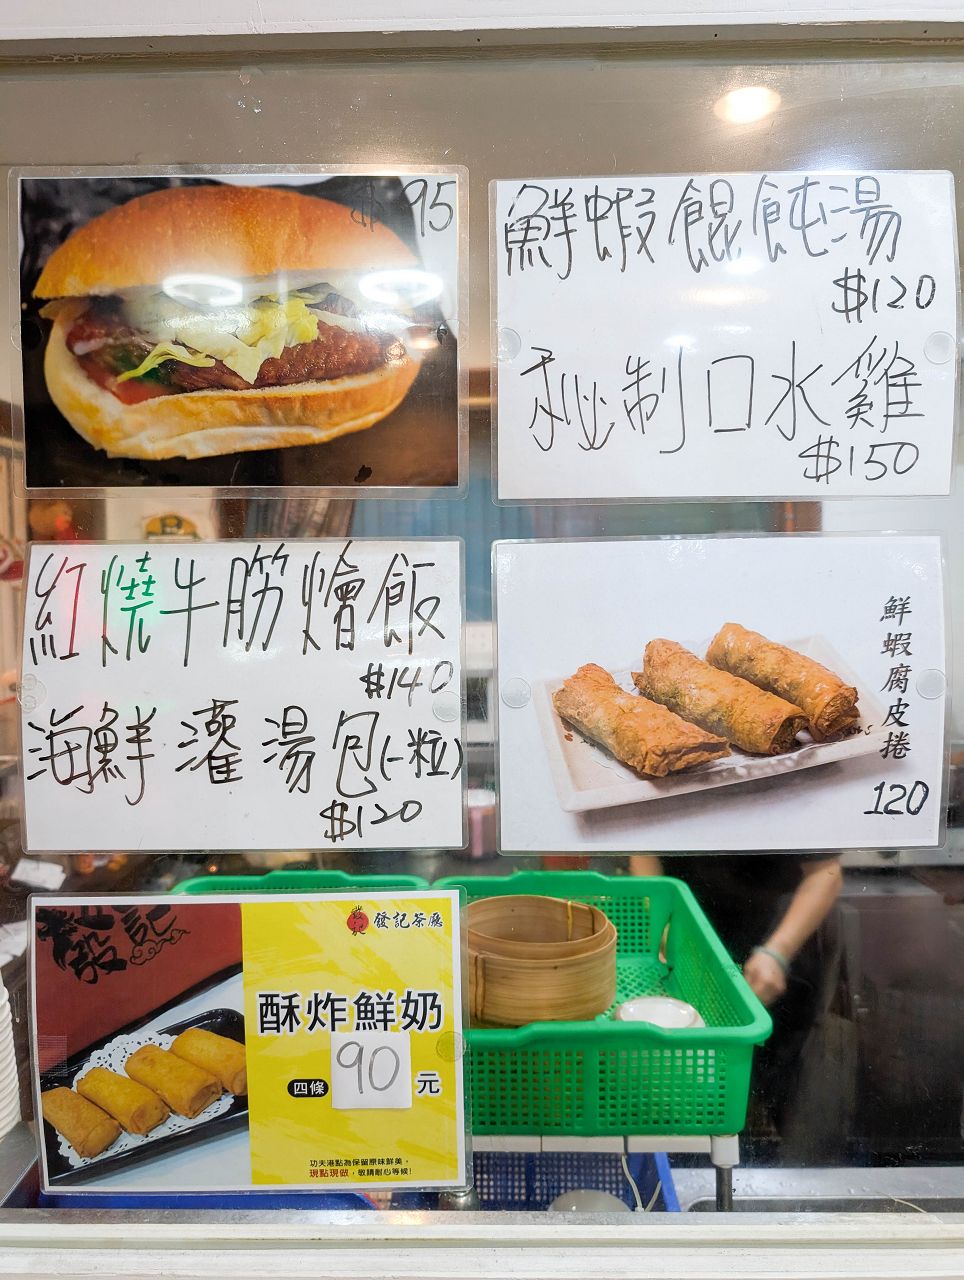 $95
鮮蝦餛飩湯
$120
秘制口水雞
$150
紅燒牛筋燴飯
$140
海鮮灌湯包(一粒)
$120
鮮蝦腐皮捲
120
發記
發記
發記茶廳
酥炸鮮奶
四條 90 元
功夫港點為保留原味鮮美，
現點現做，敬請耐心等候!